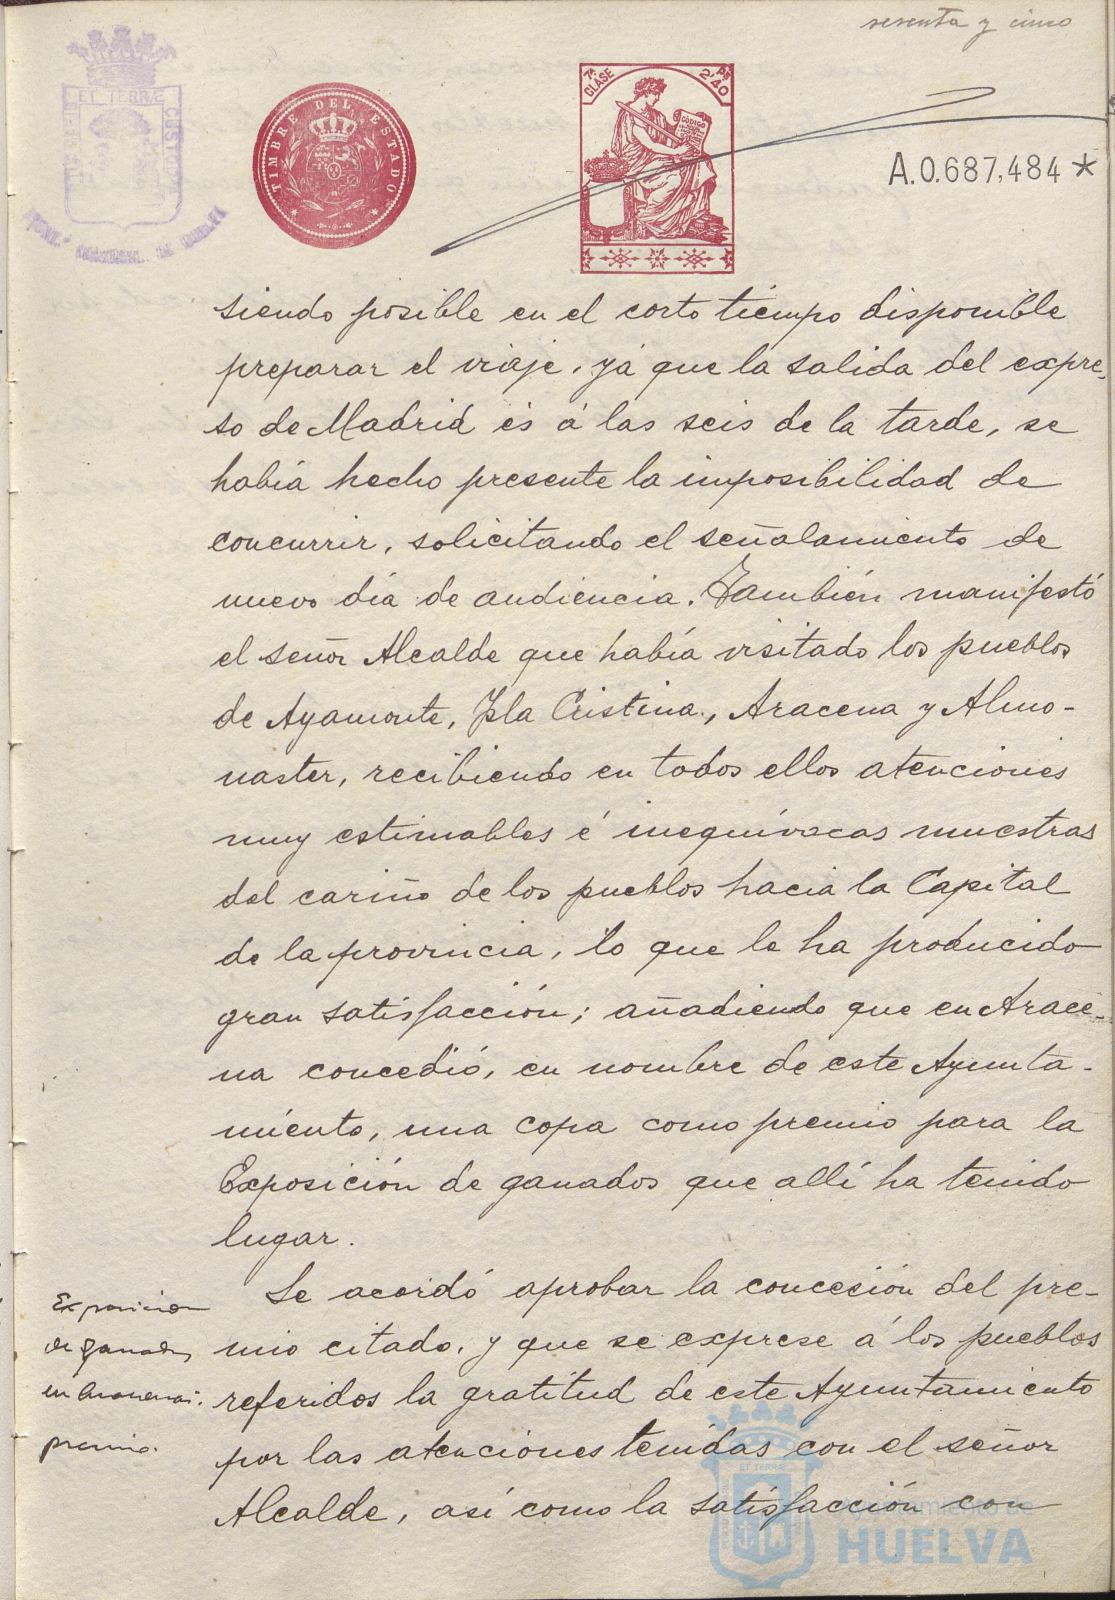 sesenta y cinco
ET TERRÆ
CUSTO
TIMBRE DEL ESTADO
7ª CLASE
2'40
CODIGO
A.0.687,484 *
siendo posible en el corto tiempo disponible
preparar el viaje, yá que la salida del expre-
so de Madrid és á las seis de la tarde, se
había hecho presente la imposibilidad de
concurrir, solicitando el señalamiento de
nuevo día de audiencia. También manifestó
el señor Alcalde que había visitado los pueblos
de Ayamonte, Isla Cristina, Aracena y Almo-
naster, recibiendo en todos ellos atenciones
muy estimables é inequívocas muestras
del cariño de los pueblos hacia la Capital
de la provincia, lo que le ha producido
gran satisfacción; añadiendo que en Arace-
na concedió, en nombre de este Ayunta-
miento, una copa como premio para la
Exposición de ganados que allí ha tenido
lugar.
Exposicion
de ganados
en Aracena:
premio.
Se acordó aprobar la concesión del pre-
mio citado, y que se exprese á los pueblos
referidos la gratitud de este Ayuntamiento
por las atenciones tenidas con el señor
Alcalde, así como la satisfacción con
Ayuntamiento de
HUELVA